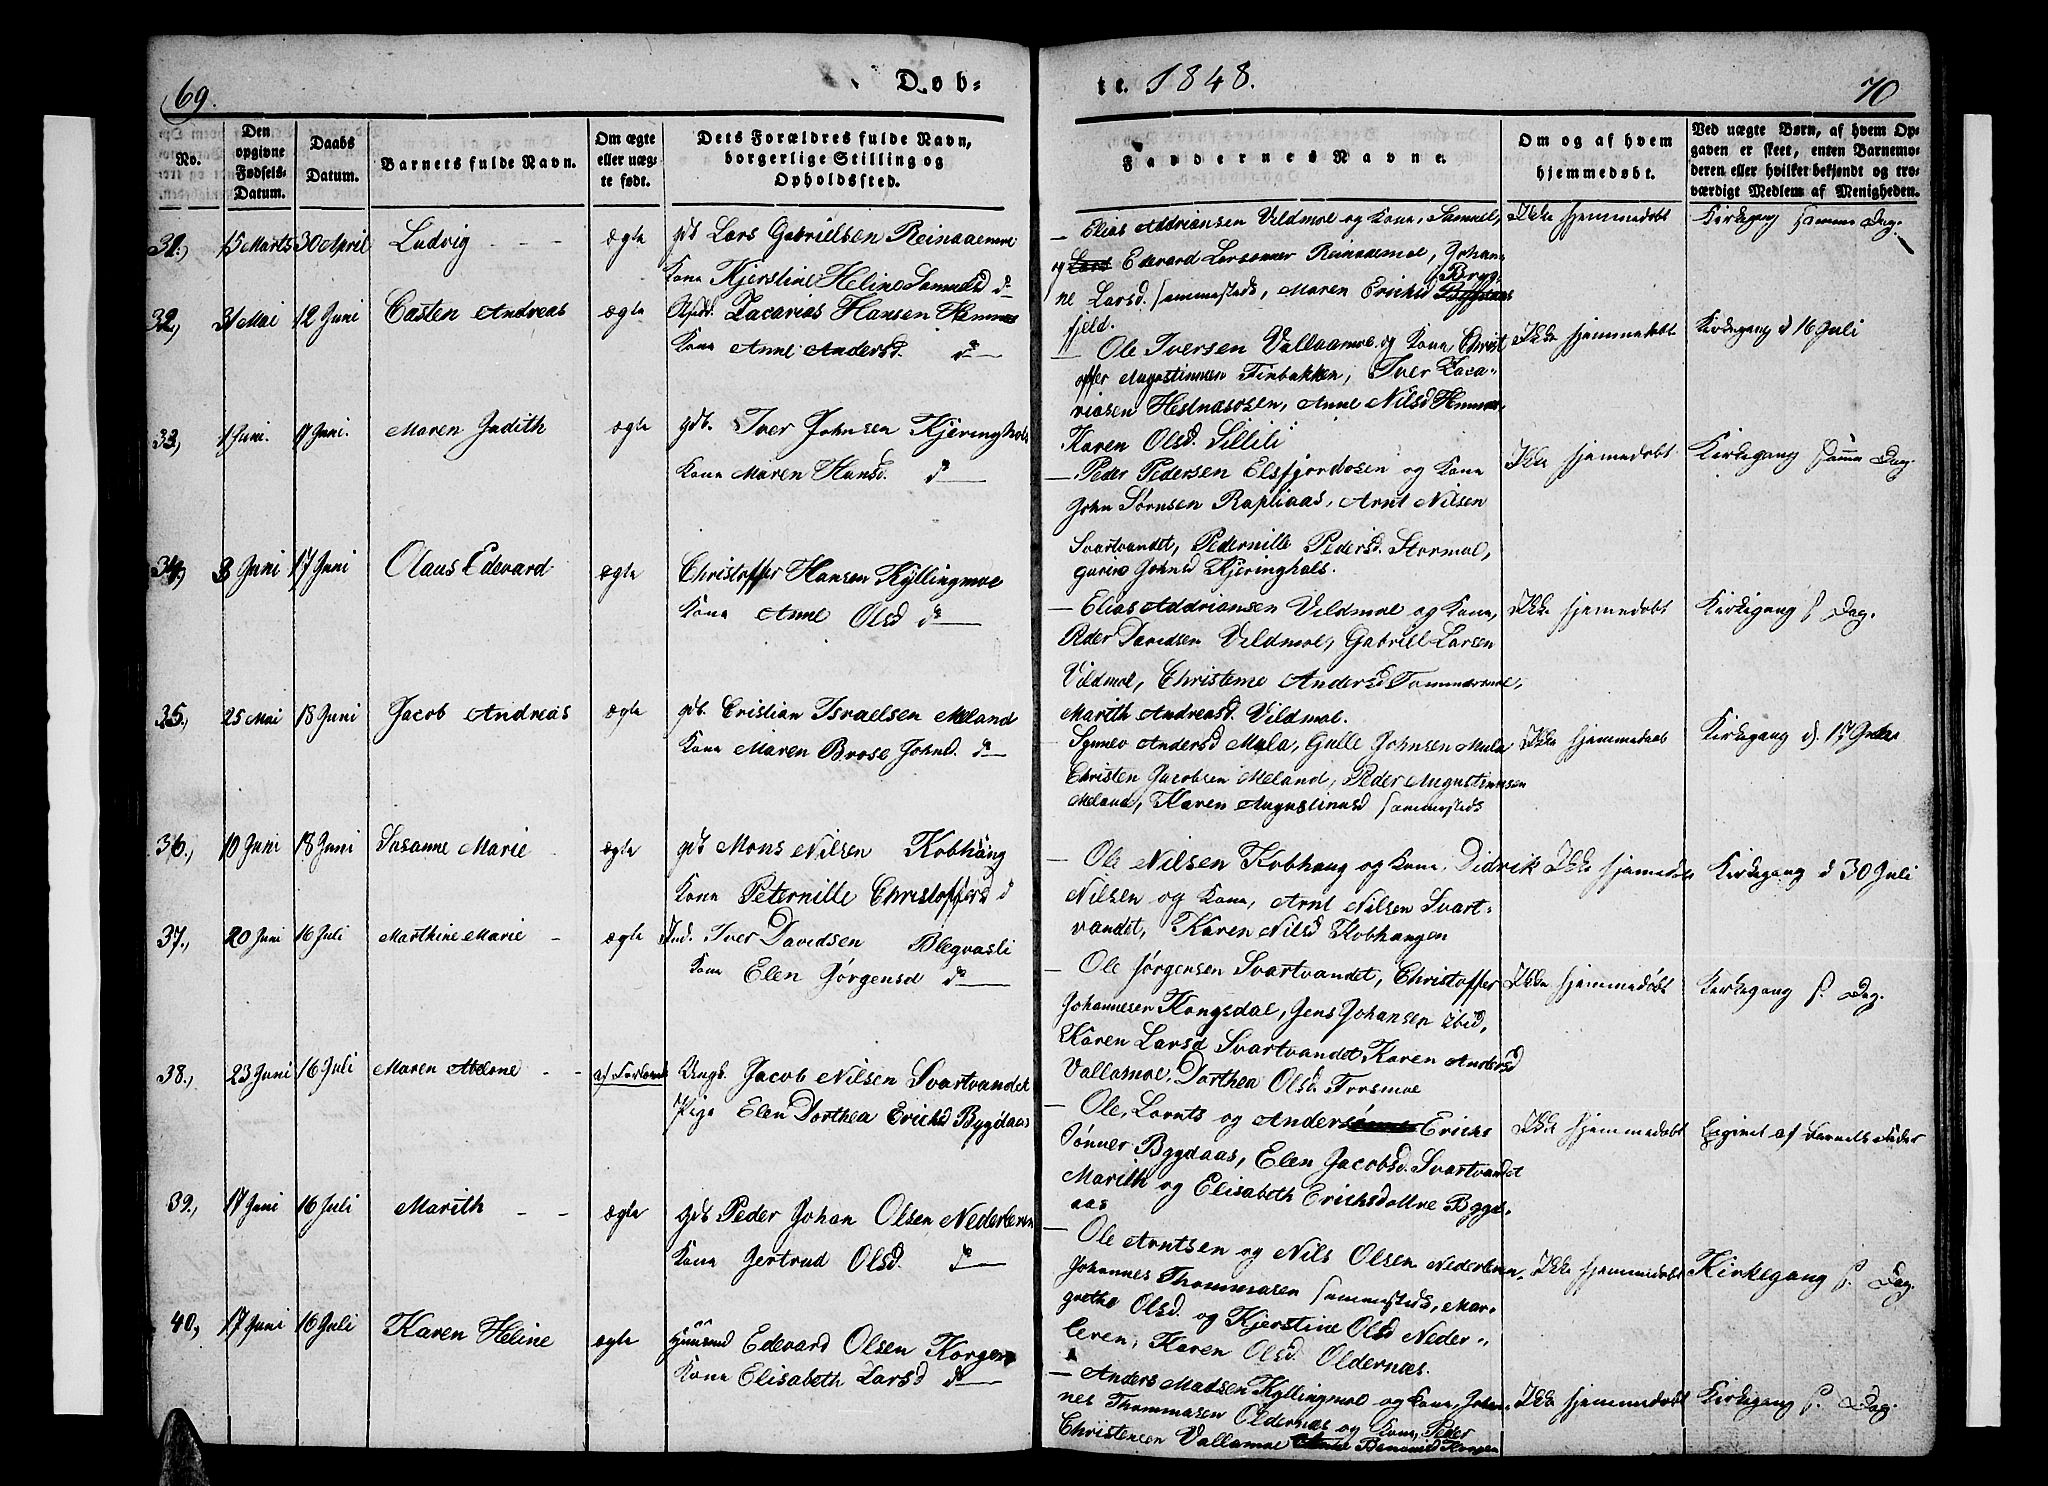 69.
Døb-
No.
Den opgivne Fødsels-Datum.
Daabs Datum.
Barnets fulde Navn.
Om ægte eller uæg-te født.
Dets Forældres fulde Navn, borgerlige Stilling og Opholdssted.
31., 15 Marts 30 April Ludvig ægte gdb Lars Gabrielsen Reinaaemoe
Kone Kjerstine Heline Samuelsd do
32., 31 Mai 12 Juni Casten Andreas ægte Zacarias Hansen Hemnes
Kone Anne Andersd. do
33., 1 Juni. 9 Juni. Maren Judith ægte gdb. Iver Johnsen Kjeringhals
Kone Maren Hansd. do
34., 3 Juni 17 Juni Olaus Edevard ægte Christoffer Hansen Kyllingmoe
Kone Anne Olsd do
35., 25 Mai 18 Juni Jacob Andreas ægte gdb. Cristian Israelsen Meland
Kone Maren Brose Johnsd. do
36., 10 Juni 18 Juni Susanne Marie ægte gdb Mons Nilsen Kobhang
Kone Peternille Christoffersd do
37., 20 Juni 16 Juli Marthine Marie ægte Ind. Iver Davidsen Blegvasli
Kone Elen Jørgensd do
38., 23 Juni 16 Juli Maren Abelone Ungk. Jacob Nilsen Svartvandet
Pige Elen Dorthea Erichsd Bygdaas
39., 17 Juni 16 Juli Marith ægte gdb Peder Johan Olsen Nederleren
Kone Gertrud Olsd. do
40., 17 Juni 16 Juli Karen Heline ægte Huusmd Edevard Olsen Korgen
Kone Elisabeth Larsd do
te. 1848.
70
Faddernes Navne.
Om og af hvem hjemmedøbt.
Ved uægte Børn, af hvem Op-
gaven er skeet, enten Barnemo-
deren eller hvilket bekjendt og tro-
værdigt Medlem af Menigheden.
– Elias Addriansen Vildmoe og Kone, Samuel, Ikke hjemmedøbt Kirkegang samme Dag.
og Lars Edevard Larsønner Reinaaemoe, Johan-
ne Larsd. sammesteds, Maren Erichsd Bryg-
fjeld.
– Ole Iversen Vallaamoe og Kone, Christ Ikke hjemmedøbt Kirkegang d 16 Juli
offer Augustinusen Finbakken, Iver Zaca-
riasen Hestnæsosen, Anne Nilsd Hemnes
Karen Olsd. Lillili
– Peder Pedersen Elsfjordosen og Kone Ikke hjemmedøbt Kirkegang samme Dag.
John Sørnsen Rapliaas, Arnt Nilsen
Svartvandet, Pedernille Pedersd. Stormoe,
Johnsd Kjeringhals.
– Elias Addriansen Vildmoe og Kone, Ikke hjemmedøbt Kirkegang s Dag.
Peder Davidsen Vildmoe, Gabriel Larsen
Vildmoe, Christense Andersd Tømmermoe,
Marith Andreasd. Vildmoe.
– Synnev Andersd Mula, Gulle Johnsen Mula Ikke hjemmedøbt Kirkegang d. 17
Christen Jacobsen Meland, Peder Augustinusen
Meland, Karen Augustinusd sammesteds
– Ole Nilsen Kobhang og Kone, Didrik Ikke hjemmedøbt Kirkegang d 30 Juli
Nilsen og Kone, Arnt Nilsen Svart-
vandet, Karen Nilsd Kobhangen
– Ole Jørgensen Svartvandet, Christoffer Ikke hjemmedøbt Kirkegang s. Dag.
Johannesen Kongsdal, Jens Johansen ibid,
Karen Larsd Svartvandet Karen Andersd
Vallamoe, Dorthea Olsd Forsmoe
– Ole, Lornts og Anders Erichs Ikke hjemmedøbt Opgivet af Barnets Fader
Sønner Bygdaas, Elen Jacobsd. Svartvandet
Marith og Elisabeth Erichsdøttre Bygd-
aas
– Ole Arntsen og Nils Olsen Nederleren Ikke hjemmedøbt Kirkegang s. Dag.
Johannes Thommasen sammesteds, Mar-
grethe Olsd. og Kjerstine Olsd Neder-
leren, Karen Olsd. Oldernæs.
– Anders Madsen Kyllingmoe og Kone, Johan- Ikke hjemmedøbt Kirkegang s. Dag.
nes Thommasen Oldernæs og Kone, Peder
Christensen Vallamoe Korgen